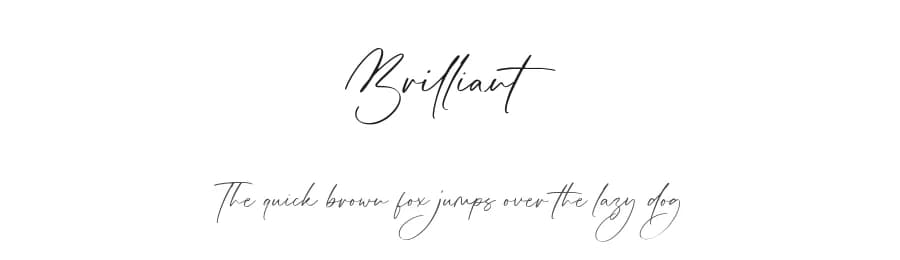 Brilliant
The quick brown fox jumps over the lazy dog